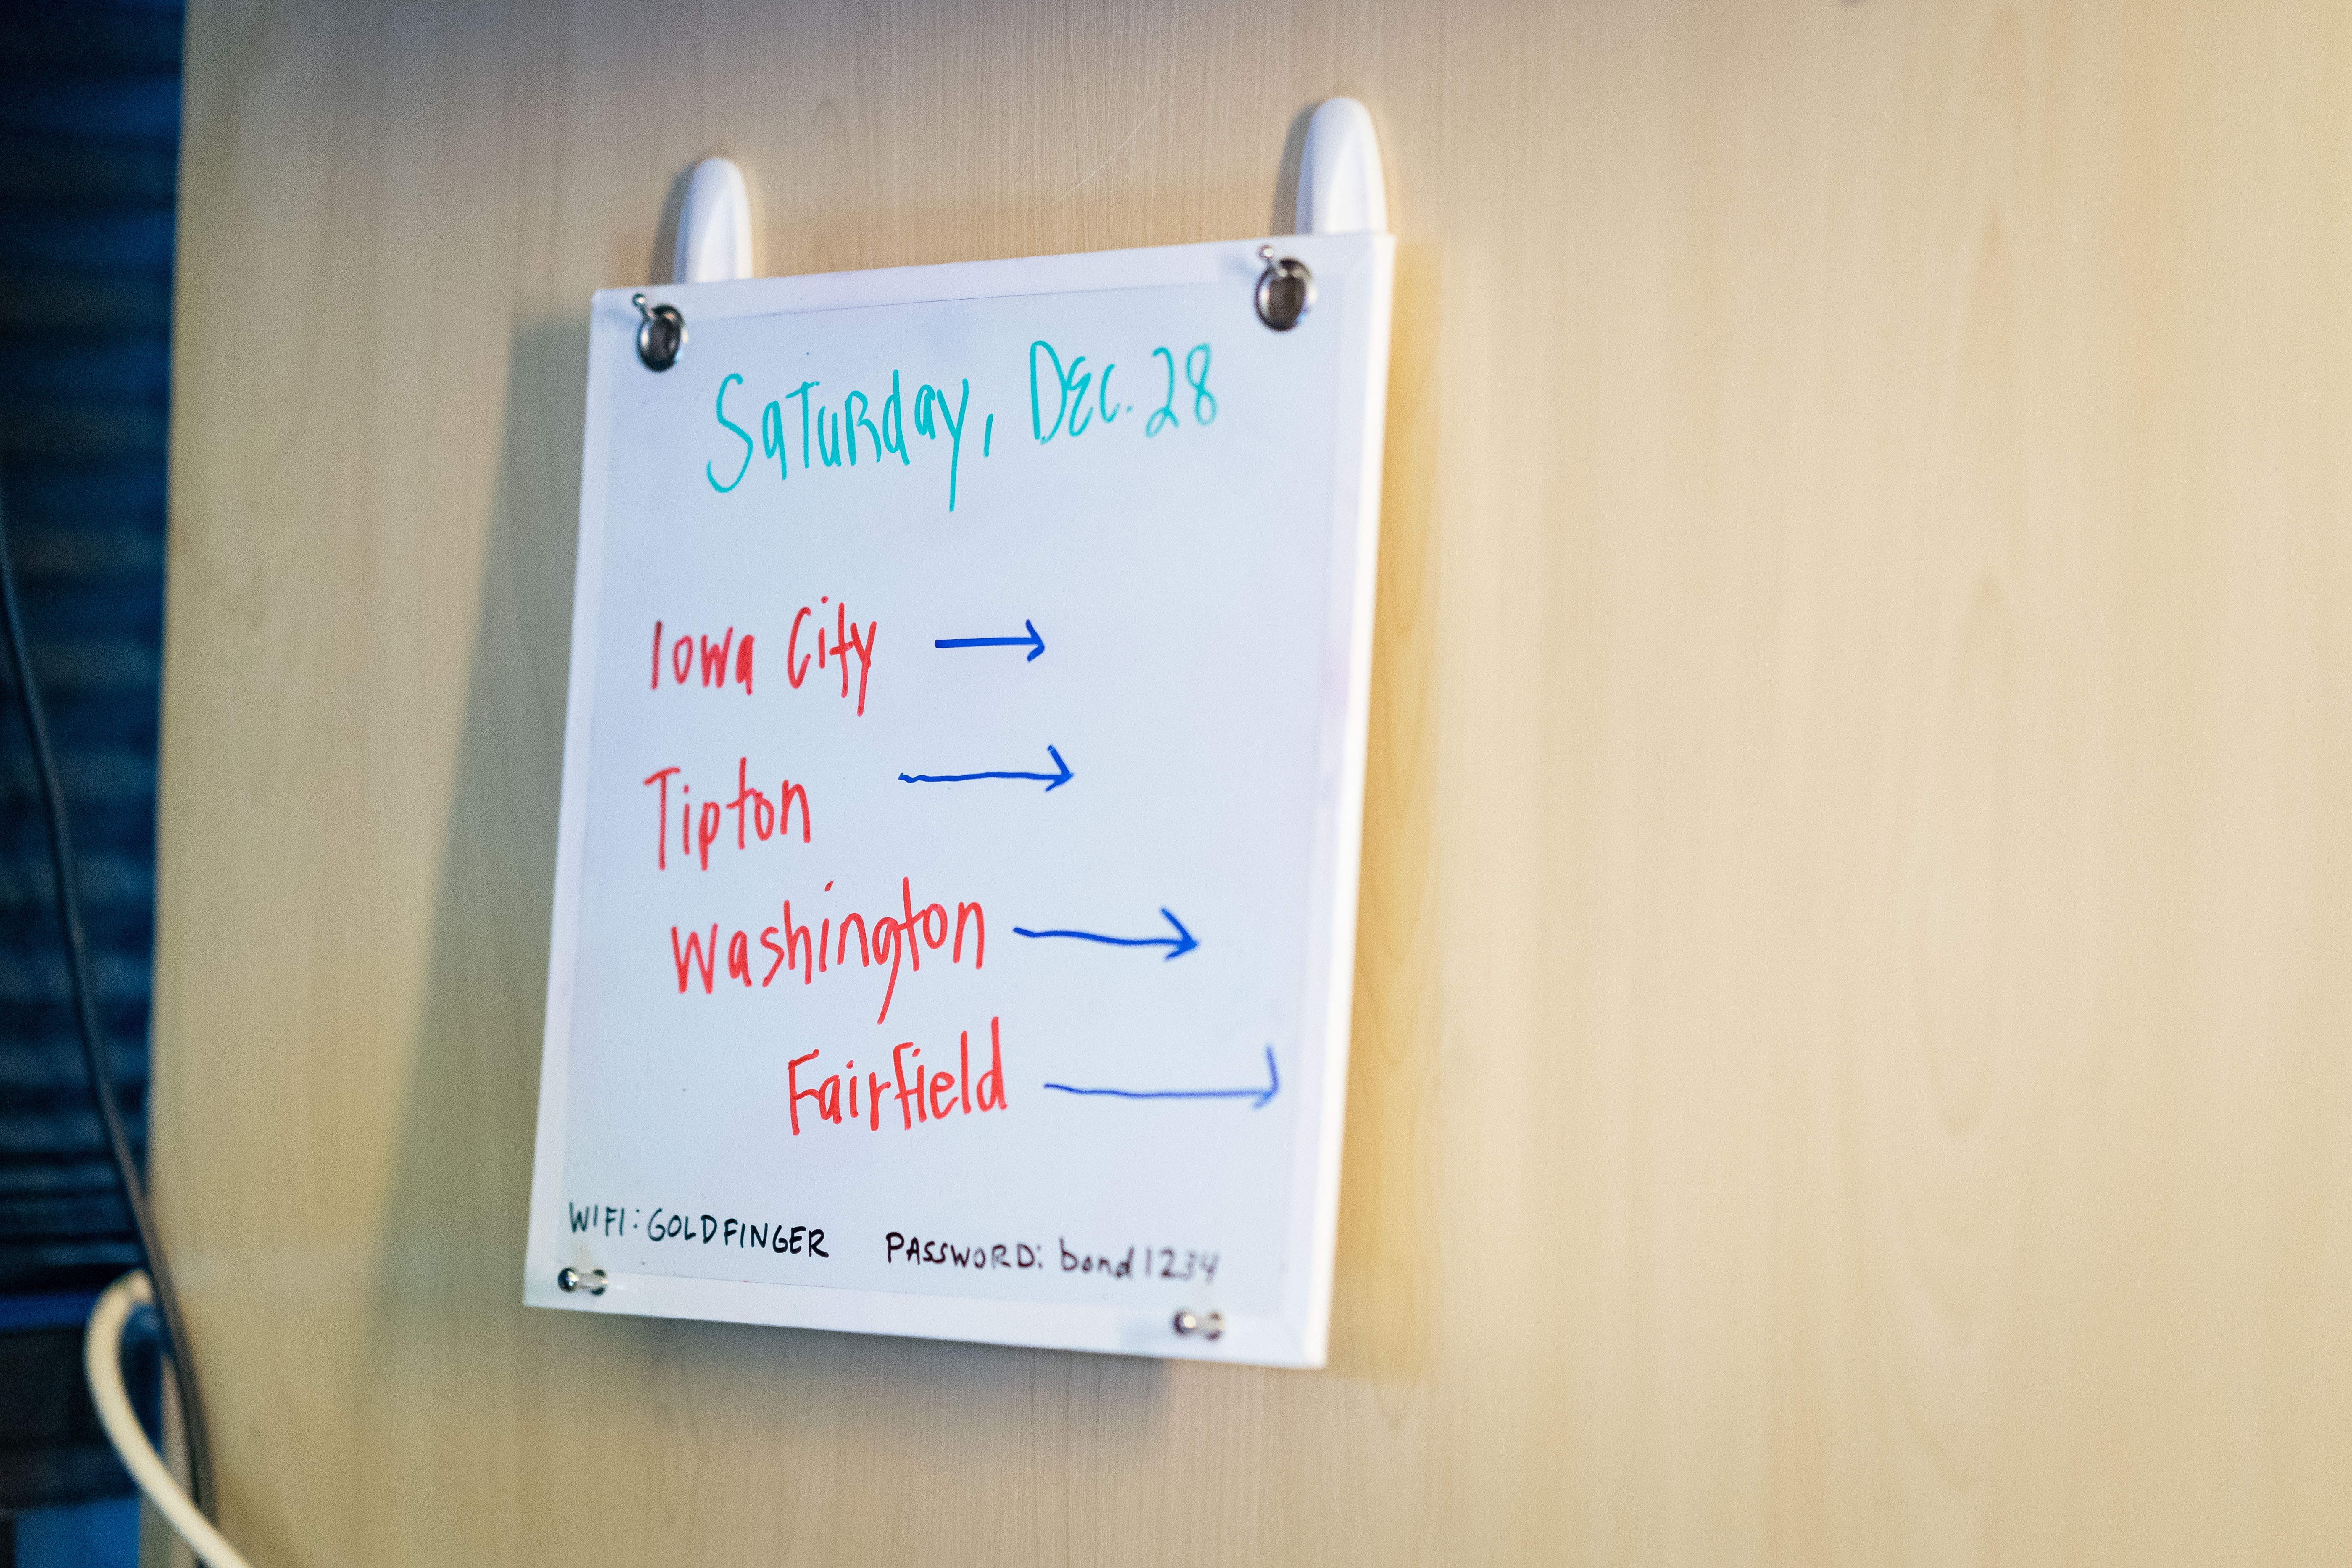 Saturday, Dec. 28
Iowa City →
Tipton →
Washington →
Fairfield →
WIFI: GOLDFINGER PASSWORD: bond1234